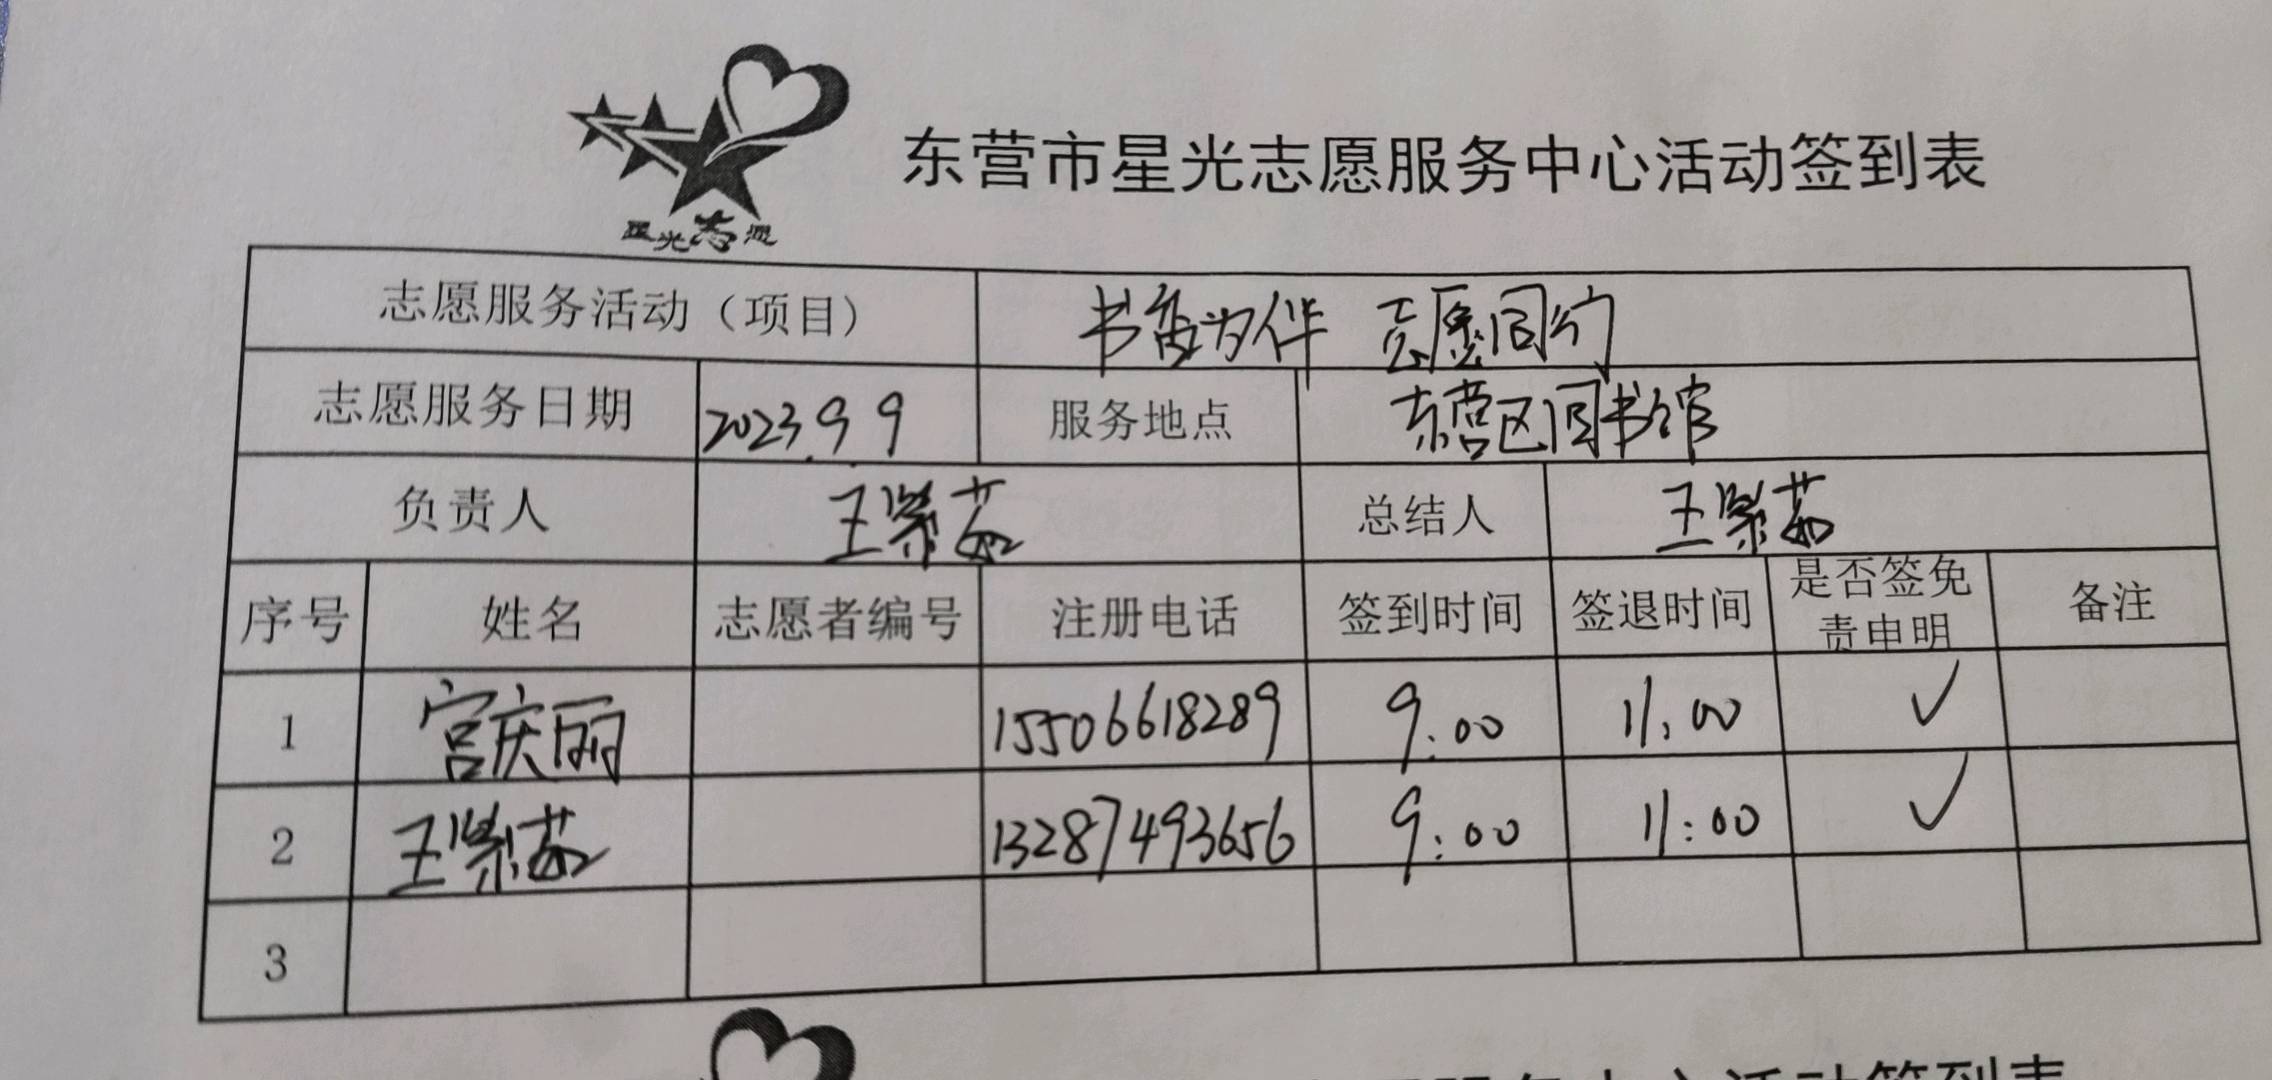 星光志愿
东营市星光志愿服务中心活动签到表
志愿服务活动（项目） 书香为伴 志愿同行
志愿服务日期 2023.9.9 服务地点 东营区图书馆
负责人 王紫茹 总结人 王紫茹
序号 姓名 志愿者编号 注册电话 签到时间 签退时间 是否签免责申明 备注
1 宫庆丽 15506618289 9:00 11:00 ✓
2 王紫茹 13287493656 9:00 11:00 ✓
3